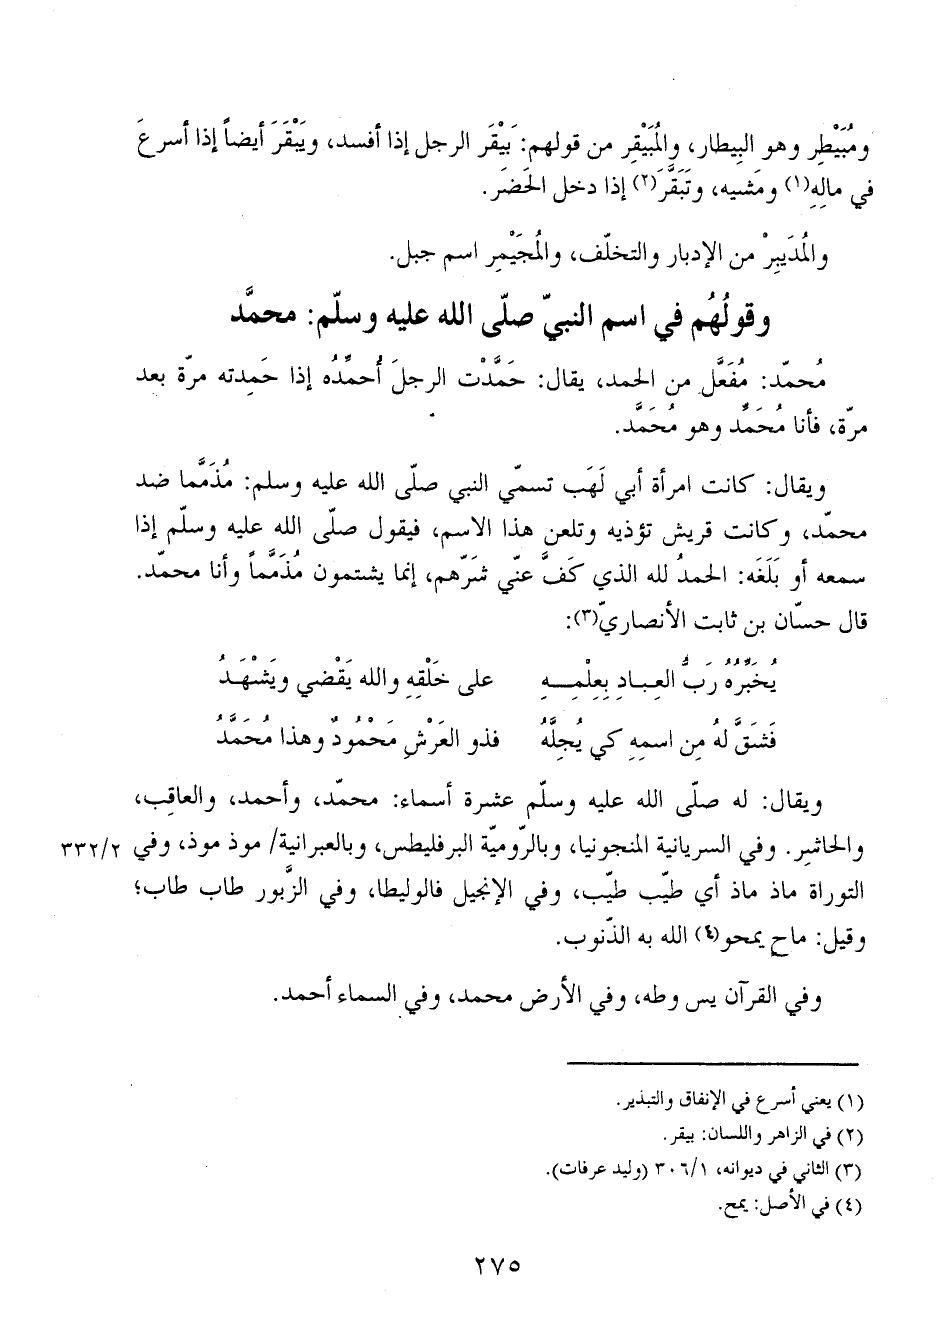 ومُبَيْطِر وهو البيطار، والمُبَيْقِر من قولهم: بَيْقَر الرجل إذا أفسد، وبَيْقَرَ أيضاً إذا أسرعَ
في مالِهِ(١) ومَشيه، وتَبَقَّرَ(٢) إذا دخل الحَضَر.
والمُدَيبِرْ من الإدبار والتخلّف، والمُجَيْمِر اسم جبل.
وقولُهُم في اسم النبيّ صلّى الله عليه وسلّم: محمَّد
مُحمّد: مُفَعَّل من الحمد، يقال: حَمَّدْت الرجلَ أُحمِّدُه إذا حَمِدته مرّة بعد
مرّة، فأنا مُحَمِّد وهو مُحَمَّد.
ويقال: كانت امرأة أبي لَهَب تسمّي النبي صلّى الله عليه وسلم: مُذَمَّما ضد
محمّد، وكانت قريش تؤذيه وتلعن هذا الاسم، فيقول صلّى الله عليه وسلّم إذا
سمعه أو بَلَغَه: الحمدُ لله الذي كفَّ عنّي شرّهم، إنما يشتمون مُذَمَّماً وأنا محمّد.
قال حسّان بن ثابت الأنصاريّ(٣):
يُخَبِّرُهُ رَبُّ العبـادِ بِعِلْمِــــهِ على خَلْقِهِ والله يَقْضي ويَشْهَـدُ
فَشَقَّ لهُ مِن اسمِهِ كي يُجِلَّهُ فذو العَرْشِ مَحْمُودٌ وهذا مُحَمَّدُ
ويقال: له صلّى الله عليه وسلّم عشرة أسماء: محمّد، وأحمد، والعاقِب،
والحاشِر. وفي السريانية المنحونيا، وبالرّوميّة البرفليطس، وبالعبرانية/ موذ موذ، وفي ٣٣٢/٢
التوراة ماذ ماذ أي طيّب طيّب، وفي الإنجيل فالوليطا، وفي الزَّبور طاب طاب؛
وقيل: ماحٍ يمحو(٤) الله به الذّنوب.
وفي القرآن يس وطه، وفي الأرض محمد، وفي السماء أحمد.
(١) يعني أسرع في الإنفاق والتبذير.
(٢) في الزاهر واللسان: بيقر.
(٣) الثاني في ديوانه، ٣٠٦/١ (وليد عرفات).
(٤) في الأصل: يمح.
٢٧٥